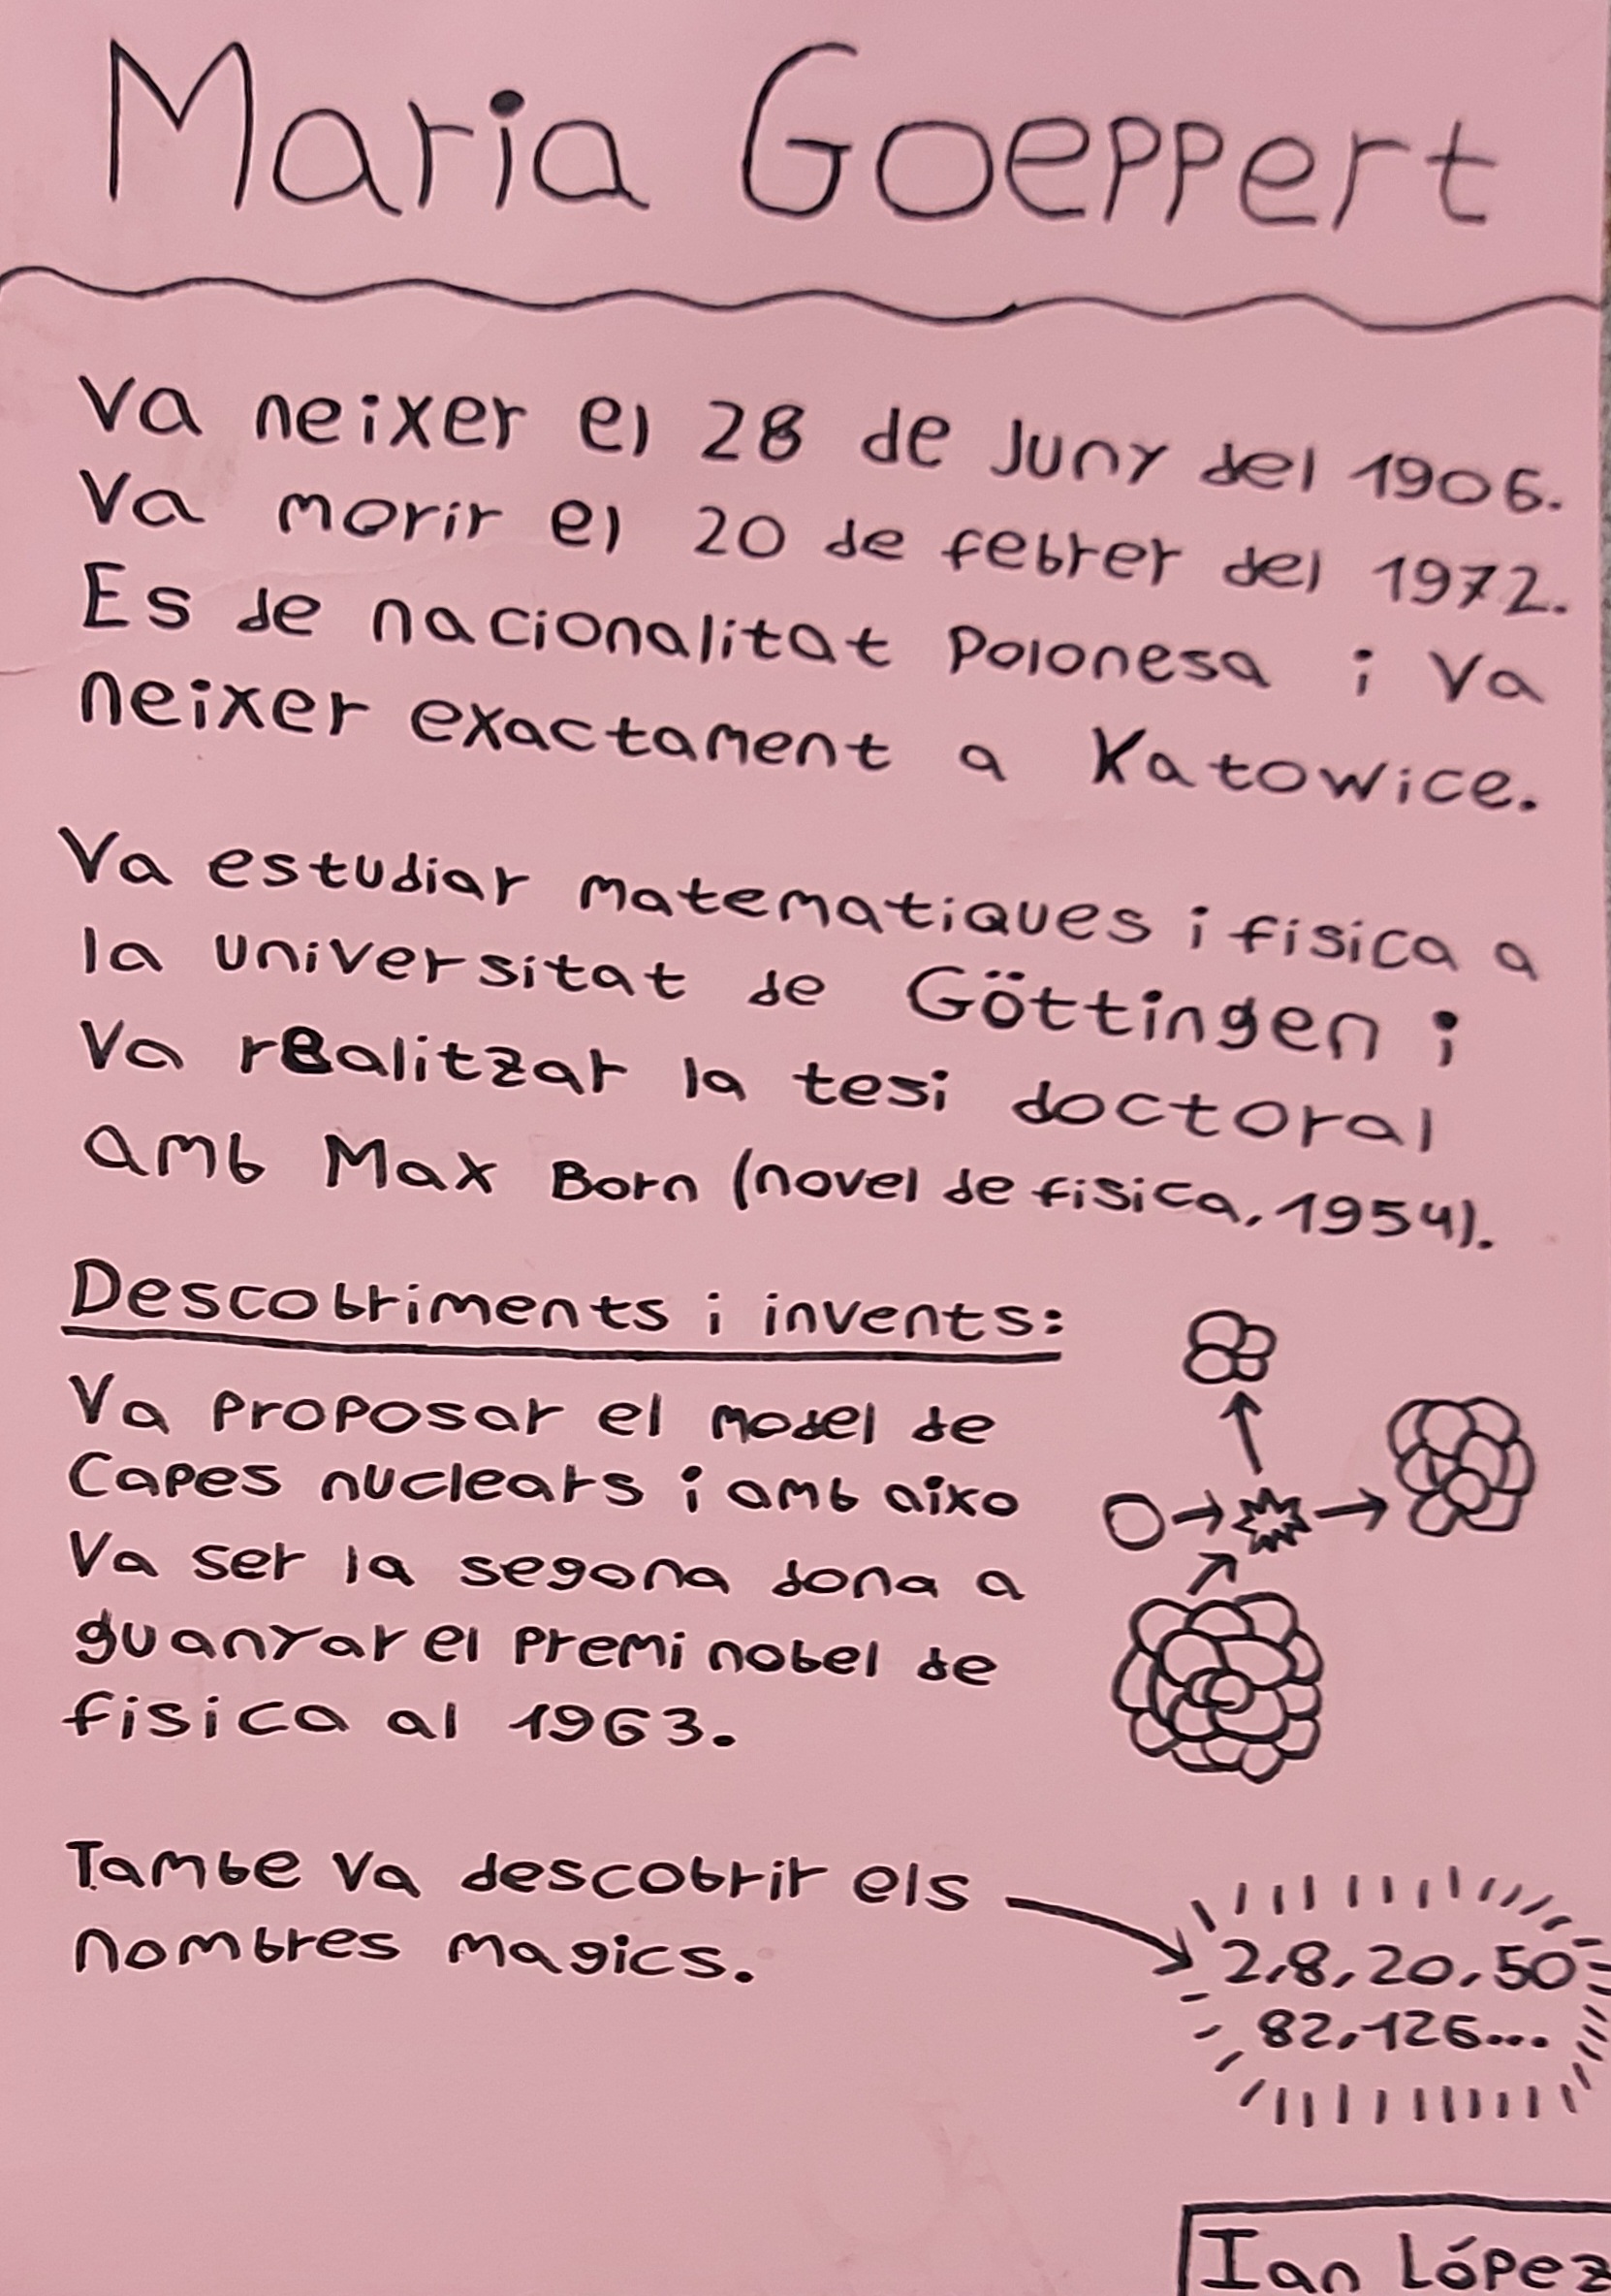 Maria Goeppert
Va neixer el 28 de Juny del 1906.
Va morir el 20 de febrer del 1972.
Es de nacionalitat Polonesa i Va
neixer exactament a Katowice.
Va estudiar matematiques i fisica a
la universitat de Göttingen i
Va realitzar la tesi doctoral
amb Max Born (novel de fisica, 1954).
Descobriments i invents:
Va proposar el model de
Capes nuclears i amb aixo
Va ser la segona dona a
guanyar el premi nobel de
fisica al 1963.
Tambe va descobrir els
nombres magics.
2,8,20,50
82,126...
Ian López